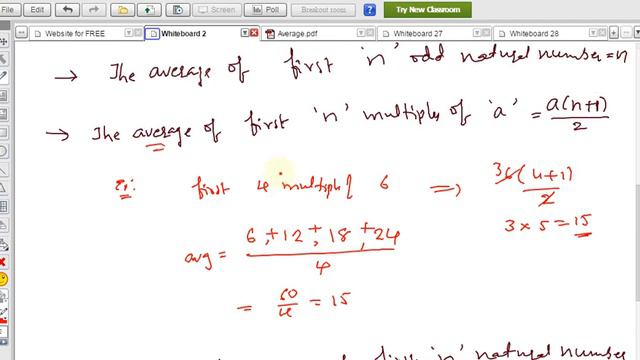 Breakout room
Try New Classroom
Website for FREE Whiteboard 2 Average.pdf Whiteboard 27 Whiteboard 28
→ The average of first 'n' odd natural number = n
→ The average of first 'n' multiples of 'a' = a(n+1)/2
Ex: first 4 multiple of 6 ⇒ 3 6(4+1)/2
3 × 5 = 15
avg = 6 + 12 + 18 + 24 / 4
= 60/4 = 15
first 'n' natural number